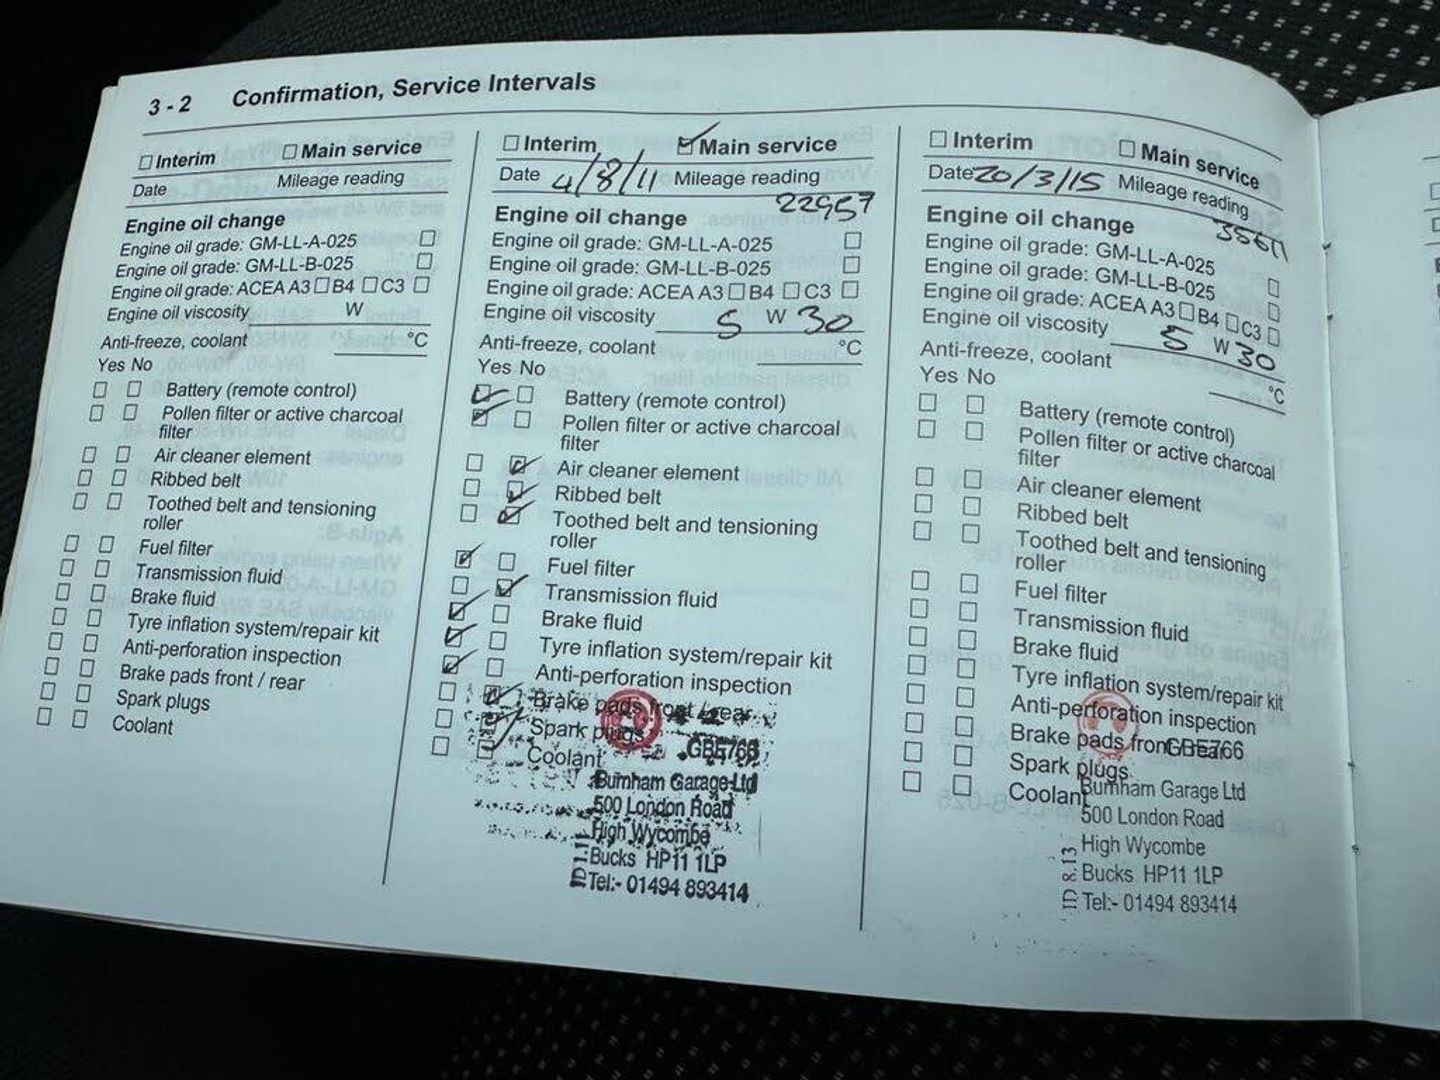 3 - 2 Confirmation, Service Intervals
Interim Main service
Date Mileage reading
Engine oil change
Engine oil grade: GM-LL-A-025
Engine oil grade: GM-LL-B-025
Engine oil grade: ACEA A3 B4 C3
Engine oil viscosity W
Anti-freeze, coolant °C
Yes No
Battery (remote control)
Pollen filter or active charcoal
filter
Air cleaner element
Ribbed belt
Toothed belt and tensioning
roller
Fuel filter
Transmission fluid
Brake fluid
Tyre inflation system/repair kit
Anti-perforation inspection
Brake pads front / rear
Spark plugs
Coolant
Interim Main service
Date 4/8/11 Mileage reading
22957
Engine oil change
Engine oil grade: GM-LL-A-025
Engine oil grade: GM-LL-B-025
Engine oil grade: ACEA A3 B4 C3
Engine oil viscosity 5 W 30
Anti-freeze, coolant °C
Yes No
Battery (remote control)
Pollen filter or active charcoal
filter
Air cleaner element
Ribbed belt
Toothed belt and tensioning
roller
Fuel filter
Transmission fluid
Brake fluid
Tyre inflation system/repair kit
Anti-perforation inspection
Brake pads front / rear
Spark plugs
GBE766
Coolant
Burnham Garage Ltd
500 London Road
High Wycombe
Bucks HP11 1LP
Tel:- 01494 893414
Interim Main service
Date 20/3/15 Mileage reading
35611
Engine oil change
Engine oil grade: GM-LL-A-025
Engine oil grade: GM-LL-B-025
Engine oil grade: ACEA A3 B4 C3
Engine oil viscosity 5 W 30
Anti-freeze, coolant °C
Yes No
Battery (remote control)
Pollen filter or active charcoal
filter
Air cleaner element
Ribbed belt
Toothed belt and tensioning
roller
Fuel filter
Transmission fluid
Brake fluid
Tyre inflation system/repair kit
Anti-perforation inspection
Brake pads front / rear
GBE766
Spark plugs
Coolant
Burnham Garage Ltd
500 London Road
High Wycombe
Bucks HP11 1LP
Tel:- 01494 893414
ID 8.13